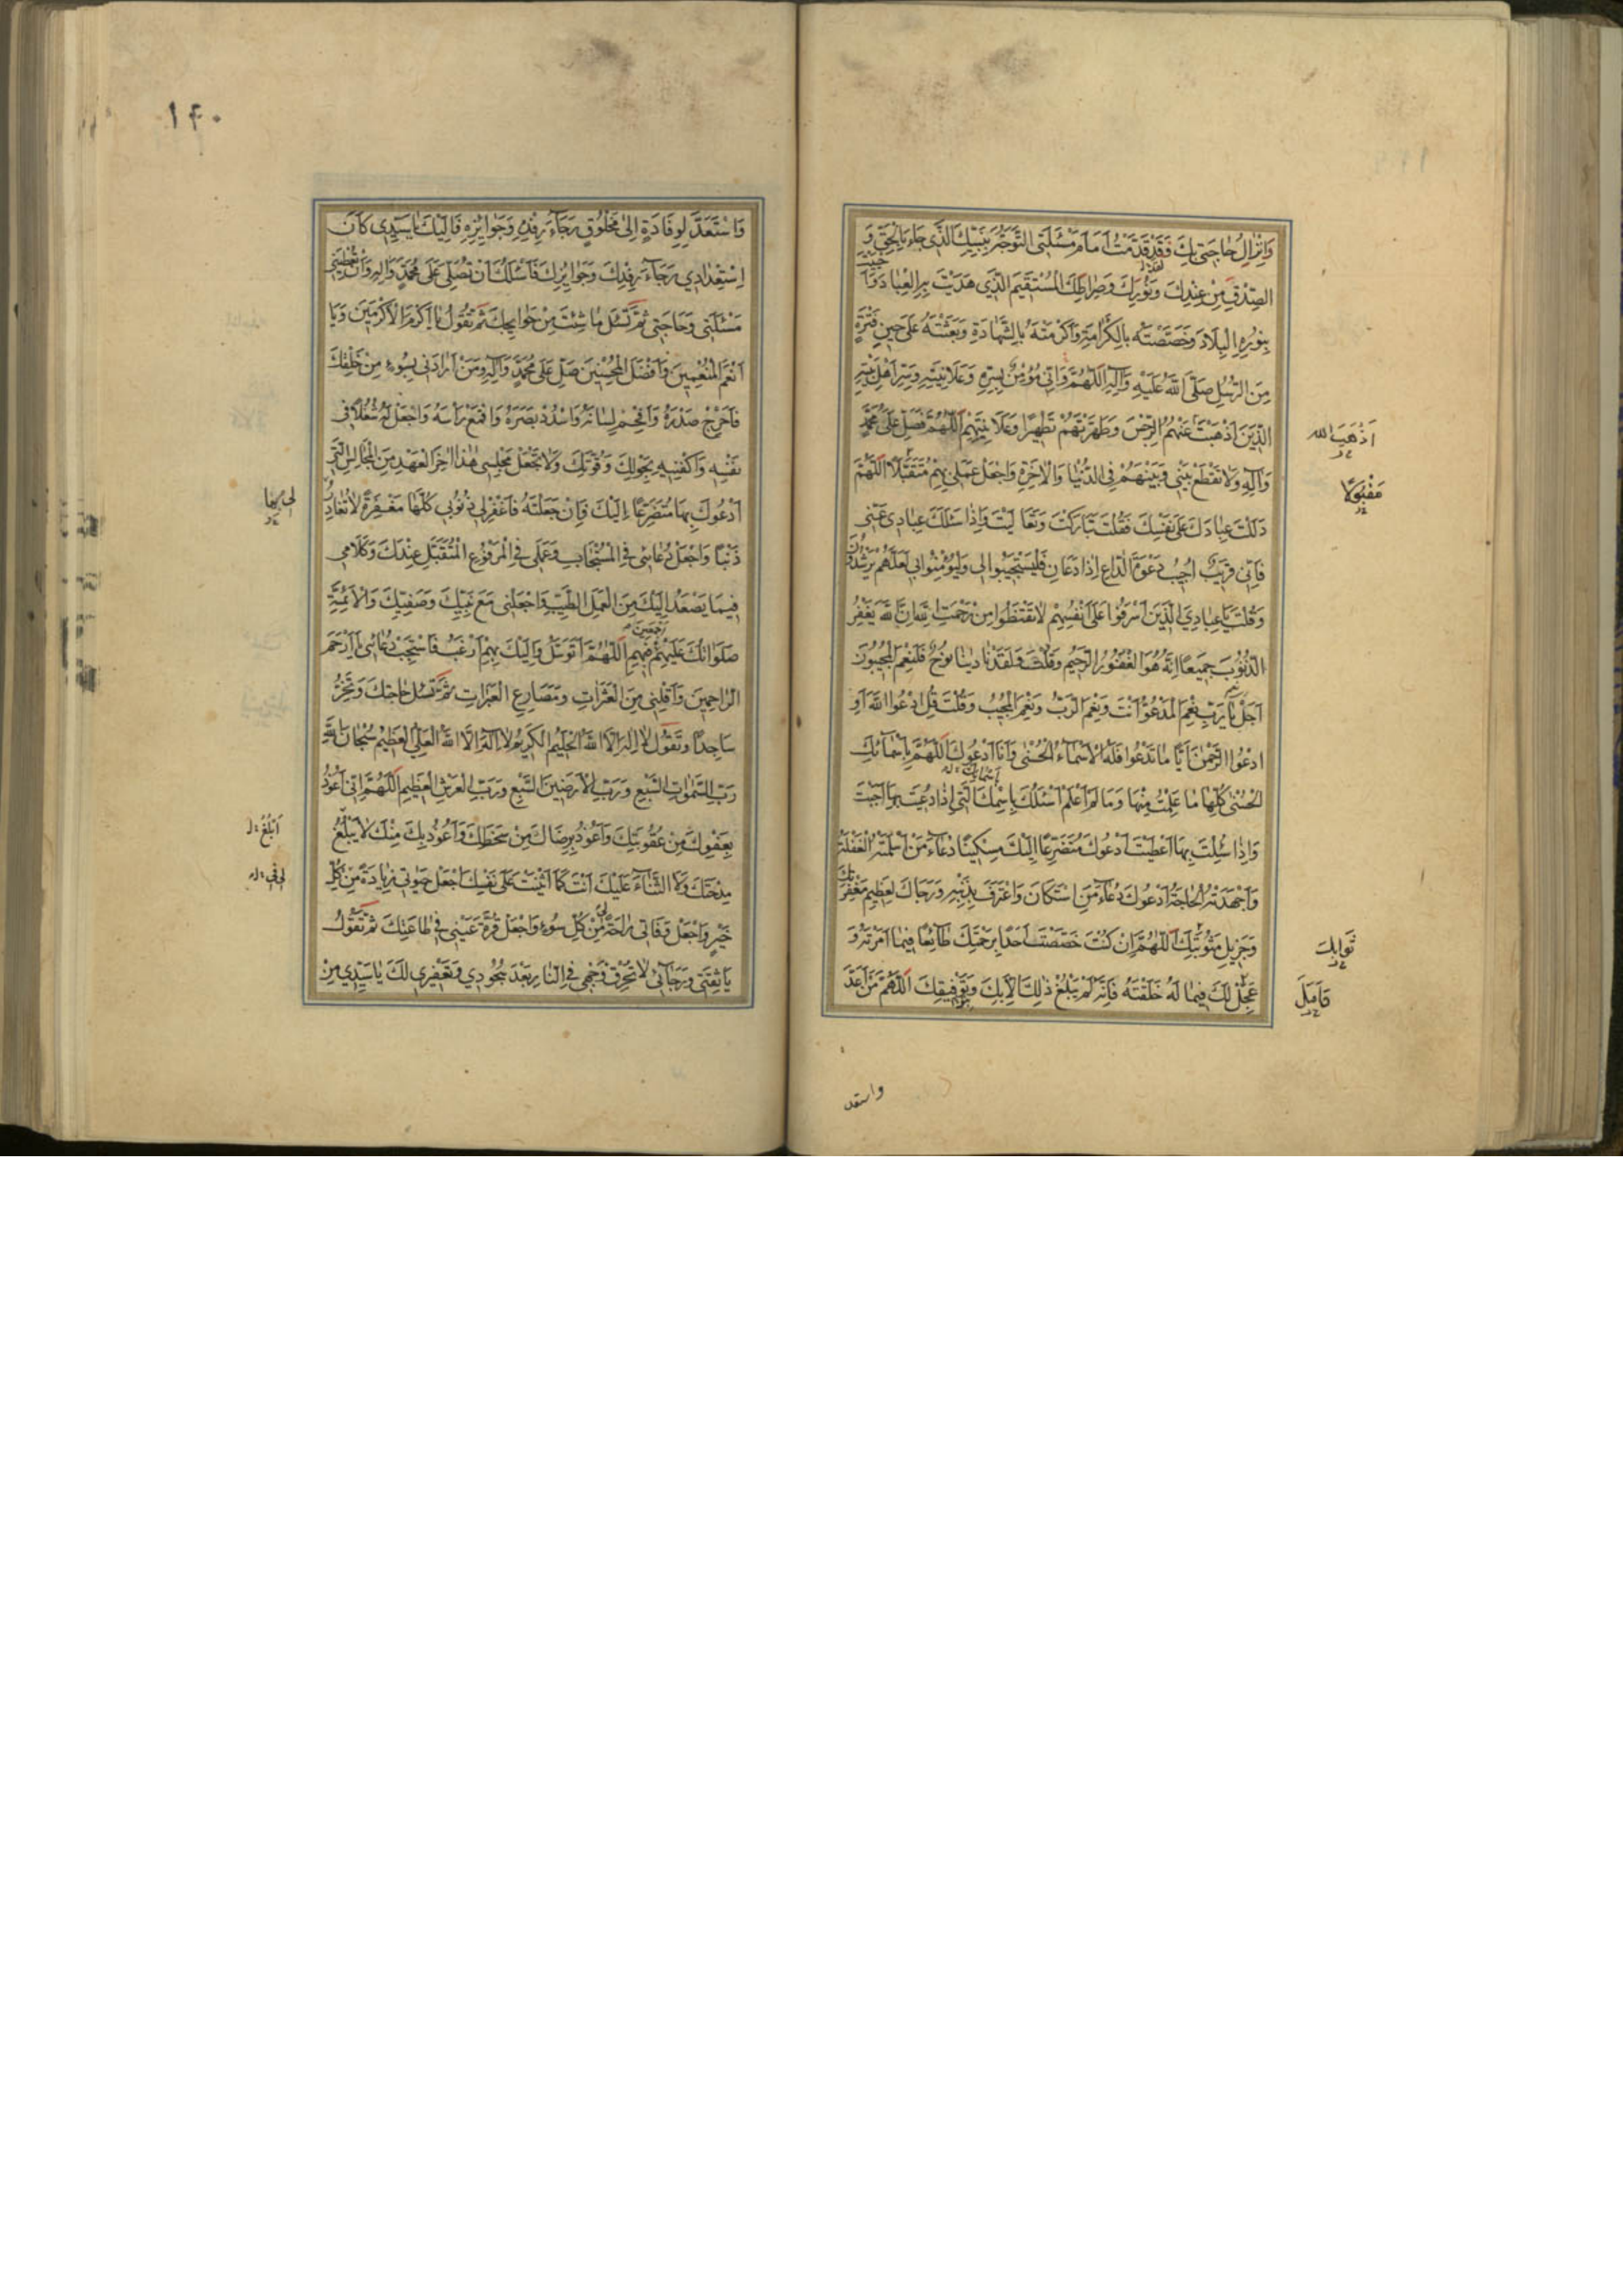 وَاِنْزالِ حاجَتي بِكَ فَقَدْ قَدَّمْتُ اَمامَ مَسْئَلَتِي التَّوَجُّهَ بِنَبِيِّكَ الَّذي جاءَ بِالْحَقِّ وَ
الصِّدْقِ مِنْ عِنْدِكَ وَنُورِكَ وَصِراطِكَ الْمُسْتَقيمِ الَّذي هَدَيْتَ بِهِ الْعِبادَ وَاَ
بِنُورِهِ الْبِلادَ وَخَصَصْتَهُ بِالْكَرامَةِ وَاَكْرَمْتَهُ بِالشَّهادَةِ وَبَعَثْتَهُ عَلى حينِ فَتْرَةٍ
مِنَ الرُّسُلِ صَلَّى اللهُ عَلَيْهِ وَآلِهِ اَللّهُمَّ وَاِنّي مُؤْمِنٌ بِسِرِّهِ وَعَلانِيَتِهِ وَسِرِّ اَهْلِ بَيْتِهِ
الَّذينَ اَذْهَبْتَ عَنْهُمُ الرِّجْسَ وَطَهَّرْتَهُمْ تَطْهيرًا وَعَلانِيَتِهِمْ اَللّهُمَّ فَصَلِّ عَلى مُحَمَّدٍ
اَذْهَبَ الله
وَآلِهِ وَلا تَقْطَعْ بَيْني وَبَيْنَهُمْ فِي الدُّنْيا وَالْاخِرَةِ وَاجْعَلْ عَمَلي بِهِمْ مُتَقَبَّلًا اَللّهُمَّ
مَقْبُولًا
دَلَلْتَ عِبادَكَ عَلى نَفْسِكَ فَقُلْتَ تَبارَكْتَ وَتَعالَيْتَ وَاِذا سَئَلَكَ عِبادي عَنّي
فَاِنّي قَريبٌ اُجيبُ دَعْوَةَ الدّاعِ اِذا دَعانِ فَلْيَسْتَجيبُوا لي وَلْيُؤْمِنُوا بي لَعَلَّهُمْ يَرْشُدُونَ
وَقُلْتَ يا عِبادِيَ الَّذينَ اَسْرَفُوا عَلى اَنْفُسِهِمْ لا تَقْنَطُوا مِنْ رَحْمَتِ اللهِ اِنَّ اللهَ يَغْفِرُ
الذُّنُوبَ جَميعًا اِنَّهُ هُوَ الْغَفُورُ الرَّحيمُ وَقُلْتَ وَلَقَدْ نادينا نُوحٌ فَلَنِعْمَ الْمُجيبُونَ
اَجَلْ يا رَبِّ نِعْمَ الْمَدْعُوُّ اَنْتَ وَنِعْمَ الرَّبُّ وَنِعْمَ الْمُجيبُ وَقُلْتَ قُلِ ادْعُوا اللهَ اَوِ
ادْعُوا الرَّحْمنَ اَيًّا ما تَدْعُوا فَلَهُ الْاَسْماءُ الْحُسْنى وَاَنَا اَدْعُوكَ اَللّهُمَّ بِاَسْمائِكَ
الْحُسْنى كُلِّها ما عَلِمْتُ مِنْها وَما لَمْ اَعْلَمْ اَسْئَلُكَ بِاِسْمِكَ الَّتي اِذا دُعيتَ بِها اَجَبْتَ
وَاِذا سُئِلْتَ بِها اَعْطَيْتَ اَدْعُوكَ مُتَضَرِّعًا اِلَيْكَ مِسْكينًا دُعاءَ مَنْ اَسْلَمَتْهُ الْغَفْلَةُ
وَاَجْهَدَتْهُ الْحاجَةُ اَدْعُوكَ دُعاءَ مَنِ اسْتَكانَ وَاعْتَرَفَ بِذَنْبِهِ وَرَجاكَ لِعَظيمِ مَغْفِرَتِكَ
وَجَزيلِ مَثُوبَتِكَ اَللّهُمَّ اِنْ كُنْتَ خَصَصْتَ اَحَدًا بِرَحْمَتِكَ طائِعًا فيما اَمَرْتَهُ وَ
ثَوابِكَ
عَجِلَ لَكَ فيما لَهُ خَلَقْتَهُ فَاِنَّهُ لَمْ يَبْلُغْ ذلِكَ اِلّا بِكَ وَبِتَوْفيقِكَ اَللّهُمَّ مَنْ اَعَدَّ
واستعد
١۴٠
وَاسْتَعَدَّ لِوِفادَةٍ اِلى مَخْلُوقٍ رَجاءَ رِفْدِهِ وَجَوائِزِهِ فَاِلَيْكَ يا سَيِّدي كانَ
اِسْتِعْدادي رَجاءَ رِفْدِكَ وَجَوائِزِكَ فَاَسْئَلُكَ اَنْ تُصَلِّيَ عَلى مُحَمَّدٍ وَآلِهِ وَاَنْ تُعْطِيَني
مَسْئَلَتي وَحاجَتي ثُمَّ تَسْئَلُ ما شِئْتَ مِنْ حَوائِجِكَ ثُمَّ تَقُولُ يا اَكْرَمَ الْاَكْرَمينَ وَيا
اَنْعَمَ الْمُنْعِمينَ وَاَفْضَلَ الْمُحْسِنينَ صَلِّ عَلى مُحَمَّدٍ وَآلِهِ وَمَنْ اَرادَني بِسُوءٍ مِنْ خَلْقِكَ
فَاَحْرِجْ صَدْرَهُ وَاَفْحِمْ لِسانَهُ وَاسْدُدْ بَصَرَهُ وَاقْمَعْ رَأْسَهُ وَاجْعَلْ لَهُ شُغُلًا في
نَفْسِهِ وَاكْفِنيهِ بِحَوْلِكَ وَقُوَّتِكَ وَلا تَجْعَلْ مَجْلِسي هذا اخِرَ الْعَهْدِ مِنَ الْمَجالِسِ الَّتي
اَدْعُوكَ بِها مُتَضَرِّعًا اِلَيْكَ وَاِنْ جَعَلْتَهُ فَاغْفِرْ لي ذُنُوبي كُلَّها مَغْفِرَةً لا تُغادِرُ
ذَنْبًا وَاجْعَلْ دُعائي فِي الْمُسْتَجابِ وَعَمَلي فِي الْمَرْفُوعِ الْمُتَقَبَّلِ عِنْدَكَ وَكَلامي
فيما يَصْعَدُ اِلَيْكَ مِنَ الْعَمَلِ الطَّيِّبِ وَاجْعَلْني مَعَ نَبِيِّكَ وَصَفِيِّكَ وَالْاَئِمَّةِ
اَجْمَعينَ
صَلَواتُكَ عَلَيْهِمْ فَبِهِمْ اَللّهُمَّ اَتَوَسَّلُ وَاِلَيْكَ بِهِمْ اَرْغَبُ فَاسْتَجِبْ دُعائي يا اَرْحَمَ
الرّاحِمينَ وَاَقِلْني مِنَ الْعَثَراتِ وَمَصارِعِ الْعَبَراتِ ثُمَّ تَسْئَلُ حاجَتَكَ وَتَخِرُّ
ساجِدًا وَتَقُولُ لا اِلهَ اِلَّا اللهُ الْحَليمُ الْكَريمُ لا اِلهَ اِلَّا اللهُ الْعَلِيُّ الْعَظيمُ سُبْحانَ اللهِ
رَبِّ السَّمواتِ السَّبْعِ وَرَبِّ الْاَرَضينَ السَّبْعِ وَرَبِّ الْعَرْشِ الْعَظيمِ اَللّهُمَّ اِنّي اَعُوذُ
بِعَفْوِكَ مِنْ عُقُوبَتِكَ وَاَعُوذُ بِرِضاكَ مِنْ سَخَطِكَ وَاَعُوذُ بِكَ مِنْكَ لا يَبْلُغُ
اَبْلُغُ
مِدْحَتَكَ وَلَا الثَّناءَ عَلَيْكَ اَنْتَ كَما اَثْنَيْتَ عَلى نَفْسِكَ اجْعَلْ حَيوتي زِيادَةً مِنْ كُلِّ
خَيْرٍ وَاجْعَلْ وَفاتي راحَةً مِنْ كُلِّ سُوءٍ وَاجْعَلْ قُرَّةَ عَيْني في طاعَتِكَ ثُمَّ تَقُولُ
يا ثِقَتي وَرَجائي لا تُحْرِقْ وَجْهي فِي النّارِ بَعْدَ سُجُودي وَتَعْفيري لَكَ يا سَيِّدي مِنْ